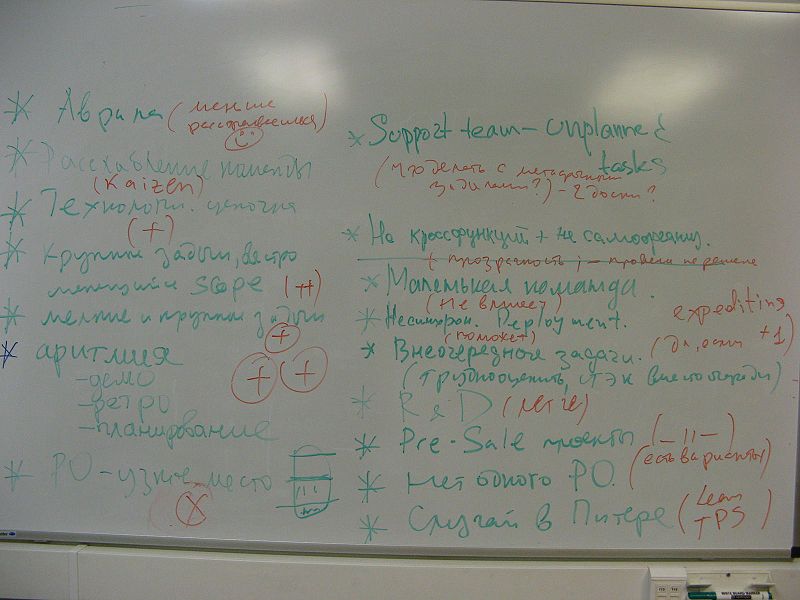 * Аврала (меньше расстраиваемся)
* Расслабление команды
(Kaizen)
* Технологич. цепочка
(+)
* Крупные задачи, быстро
меняющийся scope (++)
* мелкие и крупные задачи
(+)
* аритмия (+) (+)
- демо
- ретро
- планирование
* PO - узкое место
(X)
* Support team - Unplanned
tasks
(что делать с
задачами?) -
* Не кроссфункц + не самоорганиз.
+ прозрачность; - проблема не решена
* Маленькая команда.
(Не влияет)
* Несинхрон. Deployment.
(поможет)
expediting
* Внеочередные задачи. +1)
(трудно оценить, стэк вместо очереди)
* R&D (легче)
* Pre-Sale проекты (-||-)
(есть варианты)
* Нет одного PO.
* Случай в Питере (Lean
TPS)